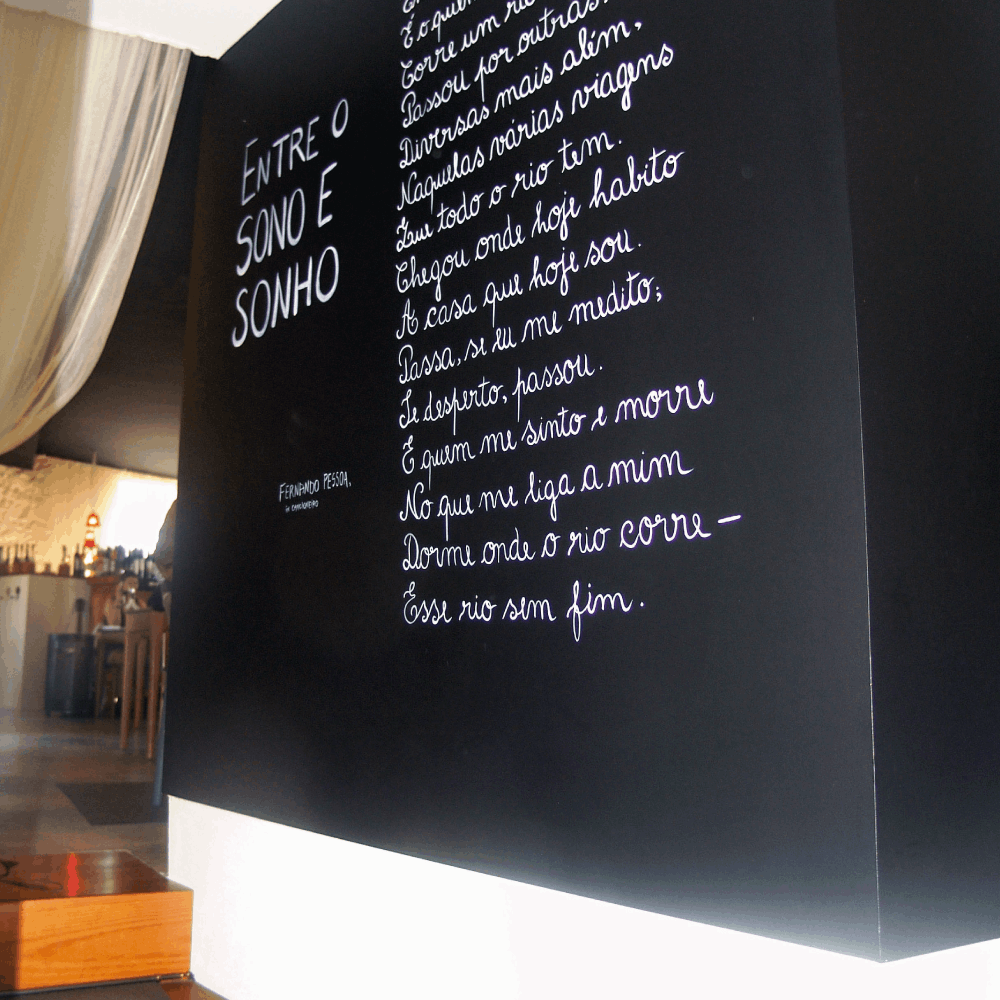 ENTRE O
SONO E
SONHO
FERNANDO PESSOA,
in CANCIONEIRO
É o que
Corre um rio
Passou por outras
Diversas mais além,
Naquelas várias viagens
Que todo o rio tem.
Chegou onde hoje habito
A casa que hoje sou.
Passa, se eu me medito;
Se desperto, passou.
E quem me sinto e morre
No que me liga a mim
Dorme onde o rio corre –
Esse rio sem fim.